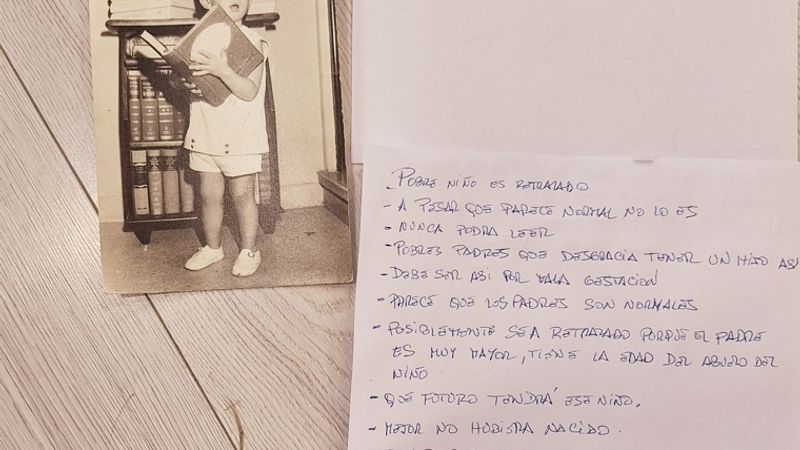 _POBRE NIÑO ES RETRASADO
- A PESAR QUE PARECE NORMAL NO LO ES
- NUNCA PODRA LEER
- POBRES PADRES QUE DESGRACIA TENER UN HIJO ASI
- DEBE SER ASI POR MALA GESTACION
- PARECE QUE LOS PADRES SON NORMALES
- POSIBLEMENTE SEA RETRASADO PORQUE EL PADRE
ES MUY MAYOR, TIENE LA EDAD DEL ABUELO DEL
NIÑO
- QUE FUTURO TENDRÁ ESE NIÑO.
- MEJOR NO HUBIERA NACIDO.